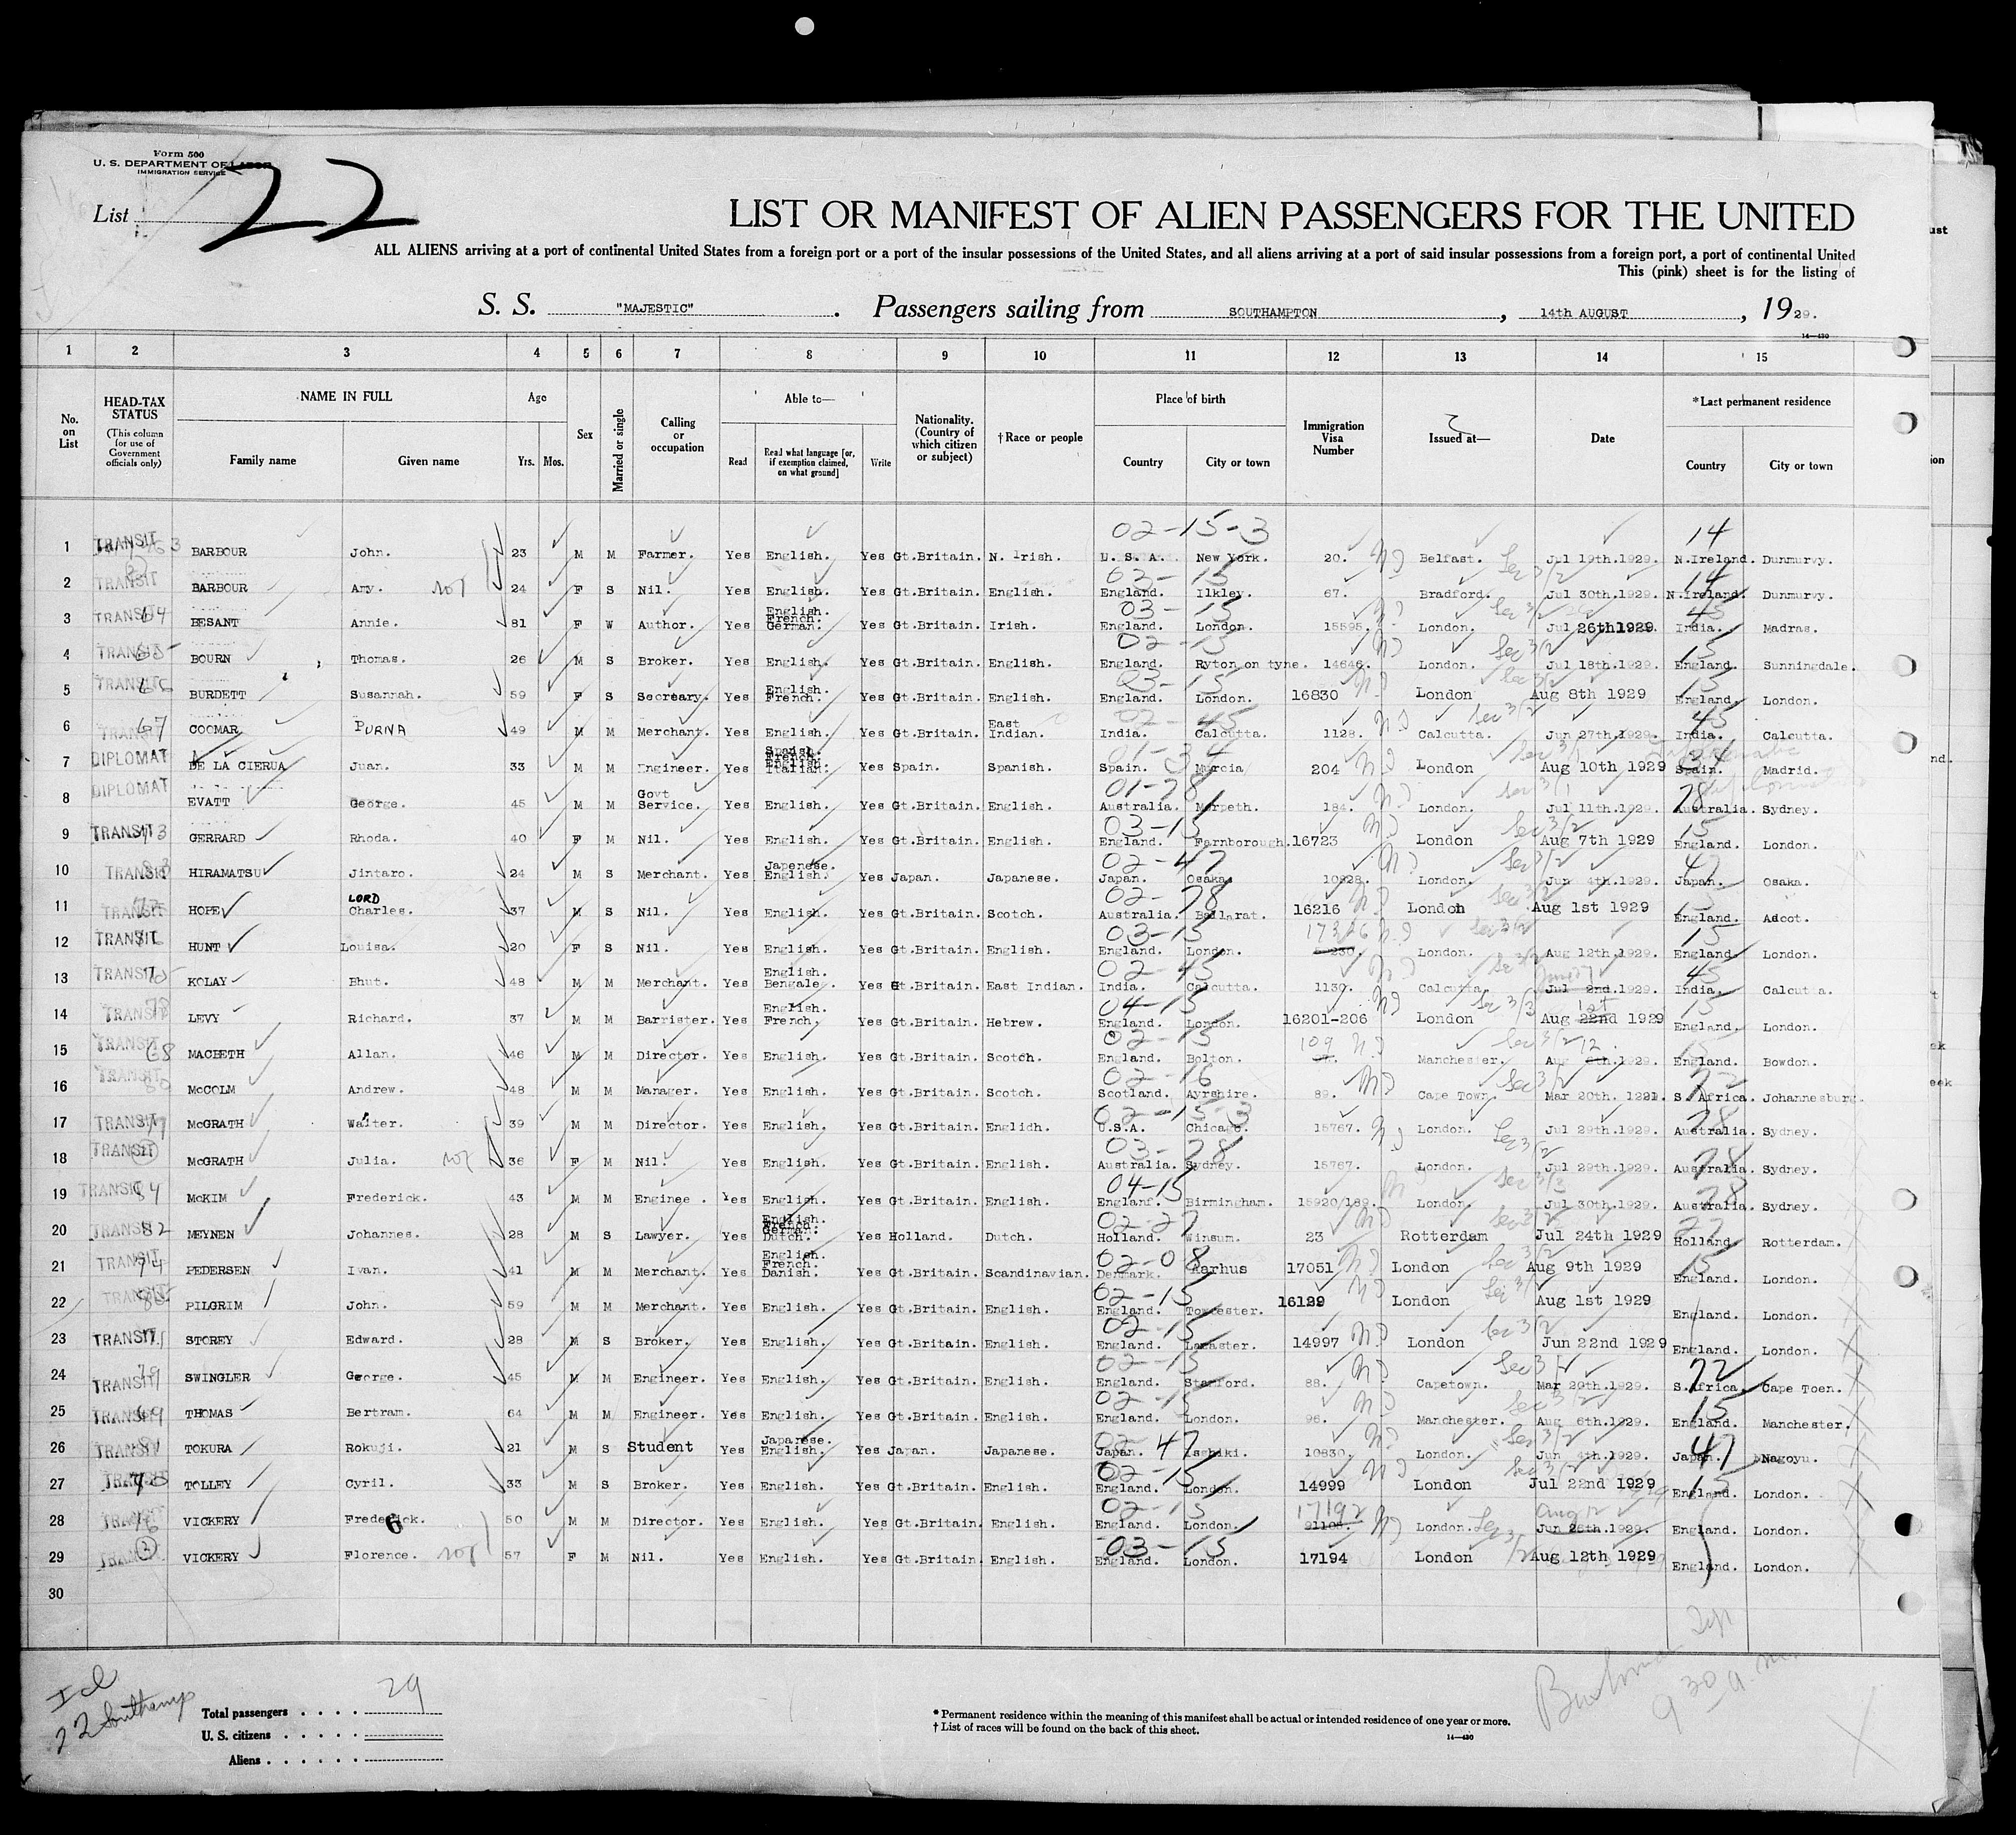 Form 500
U. S. DEPARTMENT OF LABOR
IMMIGRATION SERVICE
List 22
LIST OR MANIFEST OF ALIEN PASSENGERS FOR THE UNITED
ALL ALIENS arriving at a port of continental United States from a foreign port or a port of the insular possessions of the United States, and all aliens arriving at a port of said insular possessions from a foreign port, a port of continental United
This (pink) sheet is for the listing of
S. S. "MAJESTIC". Passengers sailing from SOUTHAMPTON, 14th AUGUST, 1929.
14—430
1 2 3 4 5 6 7 8 9 10 11 12 13 14 15
No. on List
HEAD-TAX STATUS (This column for use of Government officials only)
NAME IN FULL Family name Given name
Age Yrs. Mos.
Sex
Married or single
Calling or occupation
Able to— Read Read what language [or, if exemption claimed, on what ground] Write
Nationality. (Country of which citizen or subject)
†Race or people
Place of birth Country City or town
Immigration Visa Number
Issued at—
Date
*Last permanent residence Country City or town
1 TRANSIT BARBOUR John. 23 M M Farmer. Yes English. Yes Gt.Britain. N. Irish. U. S. A. New York. 02-15-3 20. Belfast. Jul 19th.1929. 14 N.Ireland. Dunmurvy.
2 TRANSIT BARBOUR Amy. 24 F S Nil. Yes English. Yes Gt.Britain. English. England. Ilkley. 03-15 67. Bradford. Sec 3/2 Jul 30th.1929. 14 N.Ireland. Dunmurvy.
3 TRANSIT 64 BESANT Annie. 81 F W Author. Yes English. French. German. Yes Gt.Britain. Irish. England. London. 03-15 15595. London. Sec 3/2 Jul 26th1929 45 India. Madras.
4 TRANSIT 65 BOURN Thomas. 26 M S Broker. Yes English. Yes Gt.Britain. English. England. Ryton on tyne. 02-15 14646. London. Sec 3/2 Jul 18th.1929. 15 England. Sunningdale.
5 TRANSIT BURDETT Susannah. 59 F S Secreary. Yes English. French. Yes Gt.Britain. English. England. London. 03-15 16830 London Sec 3/2 Aug 8th 1929 15 England. London.
6 TRANSIT 67 COOMAR PURNA 49 M M Merchant. Yes English. Yes Gt.Britain. East Indian. India. Calcutta. 02-45 1128. Calcutta. Sec 3/2 Jun 27th.1929. 45 India. Calcutta.
7 DIPLOMAT DE LA CIERUA Juan. 33 M M Engineer. Yes Spanish. French. English. Italian. Yes Spain. Spanish. Spain. Murcia 01-34 204 London Sec 3/1 Aug 10th 1929 34 Spain. Madrid.
8 DIPLOMAT EVATT George. 45 M M Govt Service. Yes English. Yes Gt.Britain. English. Australia. Morpeth. 01-78 184. London. Sec 3/1 Jul 11th.1929. 78 Australia. Sydney.
9 TRANSIT 73 GERRARD Rhoda. 40 F M Nil. Yes English. Yes Gt.Britain. English. England. Farnborough. 03-15 16723 London Sec 3/2 Aug 7th 1929 15 England. London.
10 TRANSIT HIRAMATSU Jintaro. 24 M S Merchant. Yes Japenese. English. Yes Japan. Japanese. Japan. Osaka. 02-47 10828. London. Sec 3/2 Jun 4th.1929. 47 Japan. Osaka.
11 TRANSIT HOPE LORD Charles. 37 M S Nil. Yes English. Yes Gt.Britain. Scotch. Australia. Ballarat. 02-78 16216 London Aug 1st 1929 England. Ascot.
12 TRANSIT HUNT Louisa. 20 F S Nil. Yes English. Yes Gt.Britain. English. England. London. 03-15 London. Sec 3/2 Aug 12th.1929. 15 England. London.
13 TRANSIT KOLAY Bhut. 48 M M Merchant. Yes English. Bengale. Yes Gt.Britain. East Indian. India. Calcutta. 02-45 1130. Calcutta. Sec 3/2 Jul 2nd.1929. 45 India. Calcutta.
14 TRANSIT LEVY Richard. 37 M M Barrister. Yes English. French. Yes Gt.Britain. Hebrew. England. London. 04-15 16201-206 London Sec 3/3 Aug 22nd 1st 1929 15 England. London.
15 TRANSIT 68 MACBETH Allan. 46 M M Director. Yes English. Yes Gt.Britain. Scotch. England. Bolton. 02-15 109 Manchester. Sec 3/2 Aug 12 1929. 15 England. Bowdon.
16 TRANSIT McCOLM Andrew. 48 M M Manager. Yes English. Yes Gt.Britain. Scotch. Scotland. Ayrshire. 02-16 89. Cape Town. Sec 3/2 Mar 20th. 72 S.Africa. Johannesburg.
17 TRANSIT McGRATH Walter. 39 M M Director. Yes English. Yes Gt.Britain. Englidh. U.S.A. Chicago. 02-15-3 15767. London. Jul 29th.1929. 78 Australia. Sydney.
18 TRANSIT McGRATH Julia. 36 F M Nil. Yes English. Yes Gt.Britain. English. Australia. Sydney. 03-78 15767. London. Sec 3/2 Jul 29th.1929. 78 Australia. Sydney.
19 TRANSIT 84 McKIM Frederick. 43 M M Enginee . Yes English. Yes Gt.Britain. English. Englanf. Birmingham. 04-15 15920/189. London. Sec 3/3 Jul 30th.1929. 78 Australia. Sydney.
20 TRANSIT 82 MEYNEN Johannes. 28 M S Lawyer. Yes English. French. German. Dutch. Yes Holland. Dutch. Holland. Winsum. 02-27 23 Rotterdam Sec 3/2 Jul 24th 1929 27 Holland. Rotterdam.
21 TRANSIT 74 PEDERSEN Ivan. 41 M M Merchant. Yes English. French. Danish. Yes Gt.Britain. Scandinavian. Denmark. Aarhus 02-08 17051 London Sec 3/2 Aug 9th 1929 15 England. London.
22 TRANSIT PILGRIM John. 59 M M Merchant. Yes English. Yes Gt.Britain. English. England. Towcester. 02-15 16129 London Aug 1st 1929 England. London.
23 TRANSIT STOREY Edward. 28 M S Broker. Yes English. Yes Gt.Britain. English. England. Lancaster. 02-15 14997 London Sec 3/2 Jun 22nd 1929 England. London.
24 TRANSIT 79 SWINGLER George. 45 M M Engineer. Yes English. Yes Gt.Britain. English. England. Stamford. 02-15 88. Capetown. Sec 3/2 Mar 20th.1929. 72 S.Africa. Cape Toen.
25 TRANSIT 69 THOMAS Bertram. 64 M M Engineer. Yes English. Yes Gt.Britain. English. England. London. 02-15 96. Manchester. Sec 3/2 Aug 6th.1929. 15 England. Manchester.
26 TRANSIT TOKURA Rokuji. 21 M S Student Yes Japanese. English. Yes Japan. Japanese. Japan. 02-47 10830. London. Sec 3/2 Jun 4th.1929. 47 Japan. Nagoyu.
27 TRANSIT TOLLEY Cyril. 33 M S Broker. Yes English. Yes Gt.Britain. English. England. London. 02-15 14999 London Sec 3/2 Jul 22nd 1929 15 England. London.
28 VICKERY Frederick. 50 M M Director. Yes English. Yes Gt.Britain. English. England. London. 02-15 17192 London. Aug 12 Jun 26th.1929. England. London.
29 VICKERY Florence. 57 F M Nil. Yes English. Yes Gt.Britain. English. England. London. 03-15 17194 London Aug 12th 1929 England. London.
30
22 Southamp
Total passengers 29
U. S. citizens
Aliens
* Permanent residence within the meaning of this manifest shall be actual or intended residence of one year or more.
† List of races will be found on the back of this sheet.
14—430
9 30 a. m.